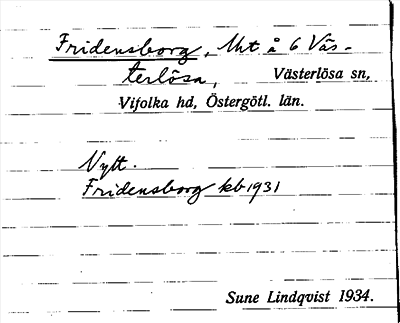 Fridensborg, Uht å 6 Väs-
terlösa, Västerlösa sn,
Vifolka hd, Östergötl. län.
Nytt.
Fridensborg kb 1931
Sune Lindqvist 1934.